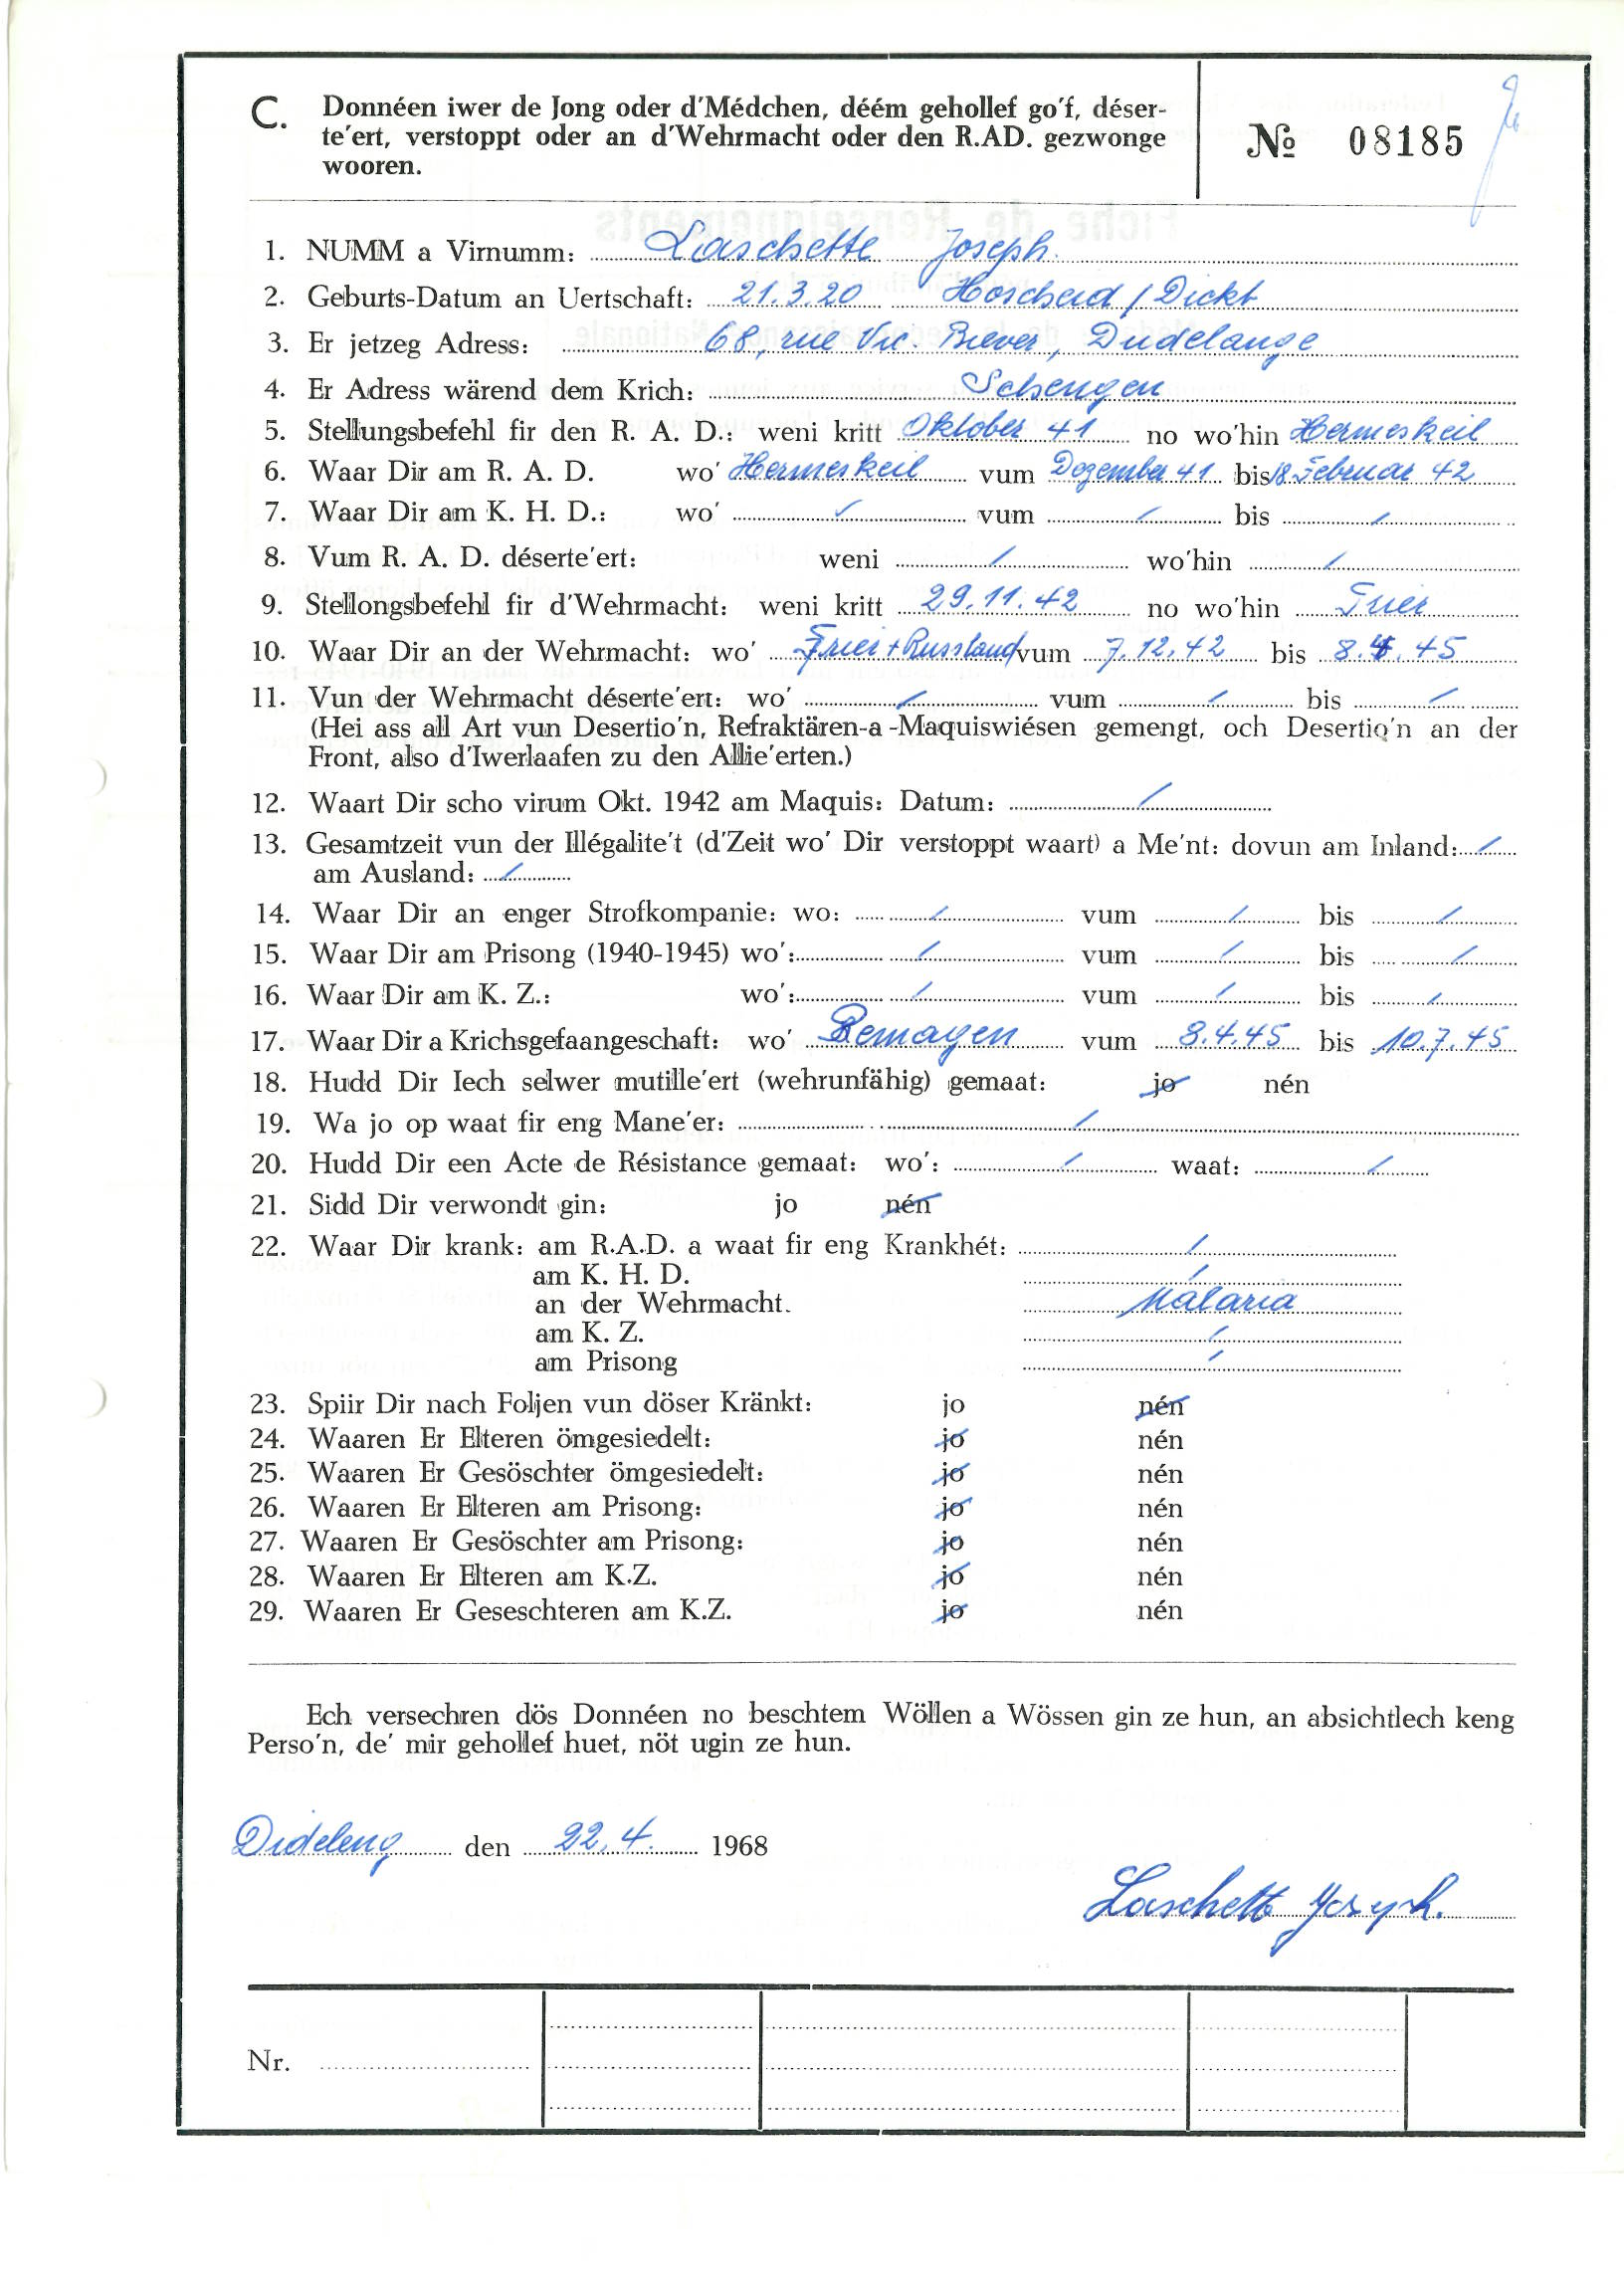 C. Donnéen iwer de Jong oder d'Médchen, déém gehollef go'f, déser-
te'ert, verstoppt oder an d'Wehrmacht oder den R.AD. gezwonge
wooren.
№ 08185
1. NUMM a Virnumm: Laschette Joseph.
2. Geburts-Datum an Uertschaft: 21.3.20 Hoscheid/Dickt
3. Er jetzeg Adress: 68, rue Vic. Biever, Dudelange
4. Er Adress wärend dem Krich: Schengen
5. Stellungsbefehl fir den R. A. D.: weni kritt Oktober 41 no wo'hin Hermeskeil
6. Waar Dir am R. A. D. wo' Hermeskeil vum Dezember 41 bis 18. Februar 42
7. Waar Dir am K. H. D.: wo' / vum / bis /
8. Vum R. A. D. déserte'ert: weni / wo'hin /
9. Stellongsbefehl fir d'Wehrmacht: weni kritt 29.11.42 no wo'hin Trier
10. Waar Dir an der Wehrmacht: wo' Trier + Russland vum 7.12.42 bis 8.4.45
11. Vun der Wehrmacht déserte'ert: wo' / vum / bis /
(Hei ass all Art vun Desertio'n, Refraktären-a -Maquiswiésen gemengt, och Desertio'n an der
Front, also d'Iwerlaafen zu den Allie'erten.)
12. Waart Dir scho virum Okt. 1942 am Maquis: Datum: /
13. Gesamtzeit vun der Illégalite't (d'Zeit wo' Dir verstoppt waart) a Me'nt: dovun am Inland: /
am Ausland: /
14. Waar Dir an enger Strofkompanie: wo: / vum / bis /
15. Waar Dir am Prisong (1940-1945) wo': / vum / bis /
16. Waar Dir am K. Z.: wo': / vum / bis /
17. Waar Dir a Krichsgefaangeschaft: wo' Remagen vum 8.4.45 bis 10.7.45
18. Hudd Dir Iech selwer mutille'ert (wehrunfähig) gemaat: jo nén
19. Wa jo op waat fir eng Mane'er: /
20. Hudd Dir een Acte de Résistance gemaat: wo': / waat: /
21. Sidd Dir verwondt gin: jo nén
22. Waar Dir krank: am R.A.D. a waat fir eng Krankhét: /
am K. H. D. /
an der Wehrmacht. Malaria
am K. Z. /
am Prisong /
23. Spiir Dir nach Foljen vun döser Kränkt: jo nén
24. Waaren Er Elteren ömgesiedelt: jo nén
25. Waaren Er Gesöschter ömgesiedelt: jo nén
26. Waaren Er Elteren am Prisong: jo nén
27. Waaren Er Gesöschter am Prisong: jo nén
28. Waaren Er Elteren am K.Z. jo nén
29. Waaren Er Geseschteren am K.Z. jo nén
Ech versechren dös Donnéen no beschtem Wöllen a Wössen gin ze hun, an absichtlech keng
Perso'n, de' mir gehollef huet, nöt ugin ze hun.
Dideleng den 22.4. 1968
Laschett Joseph.
Nr.